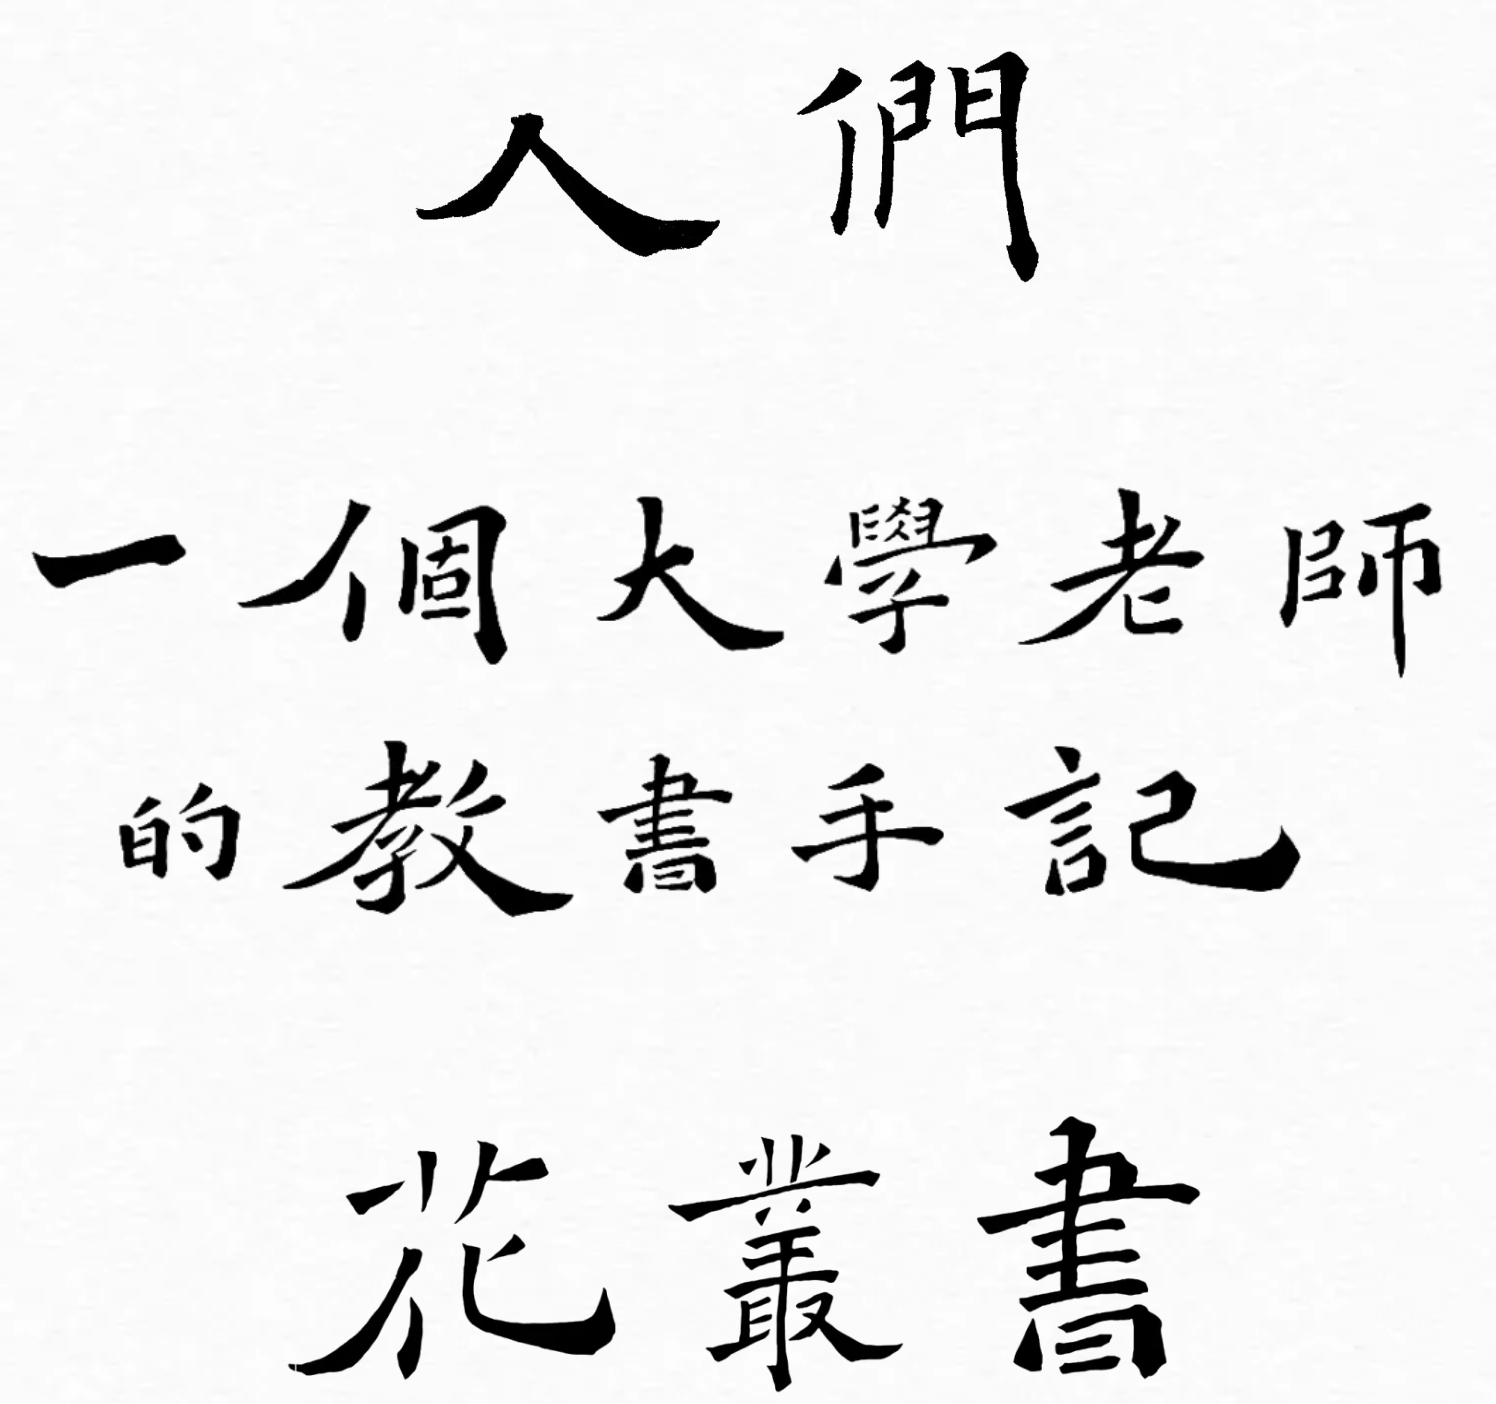 人們
一個大學老師
的教書手記
花叢書